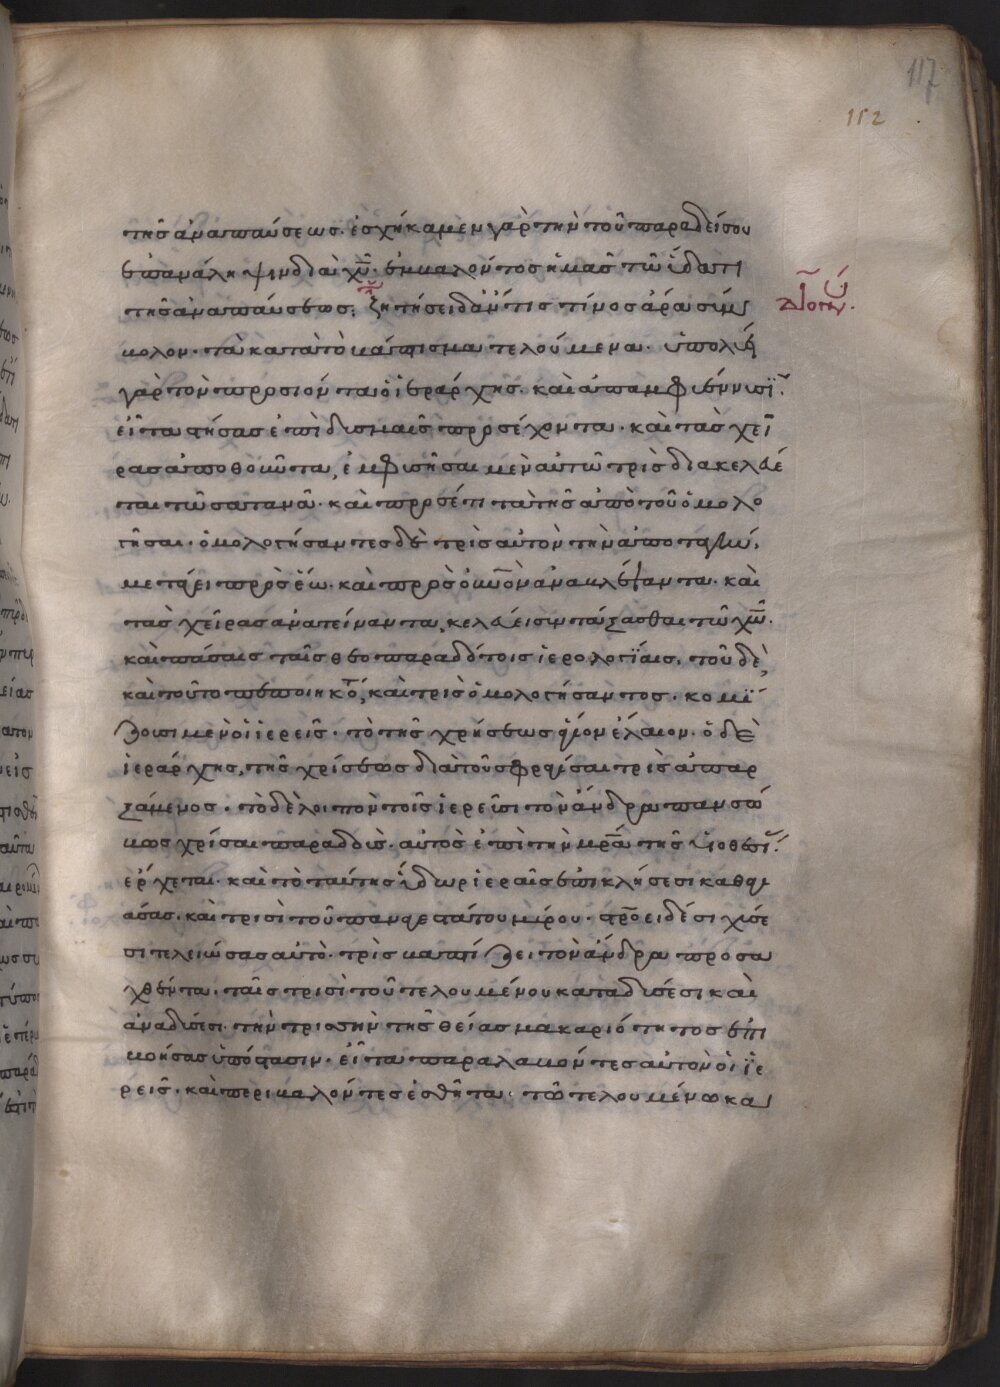 117
152
τῆς ἀναπαύσεως. ἐσχήκαμεν γὰρ τὴν τοῦ παραδείσου
ἐπανάληψιν διὰ χ̅υ̅. ἐγκαλοῦντος ἡμᾶς τῶ ὕδατι
τῆς ἀναπαύσεως. ζητήσει δ' ἄν τις τίνος ἄρα σύμ
βολον. τὰ κατὰ τὸ βάπτισμα τελούμενα. ὑπολύει
γὰρ τὸν προσιόντα ὁ ἱεράρχης. καὶ ἀπαμφιέννυσϊ.
εἶτα στήσας ἐπὶ δυσμαῖς προσέχοντα. καὶ τὰς χεῖ
ρας ἀπωθοῦντα, ἐμφυσῆσαι μὲν αὐτῶ τρὶς διακελεύε
ται τῶ σατανᾶ. καὶ προσέτι τὰ τῆς ἀποτου ὁμολο
γῆσαι. ὁμολογήσαντος δὲ τρὶς αὐτὸν τὴν ἀποταγὴν,
μετάγει πρὸς ἕω. καὶ πρὸς ο̅υ̅ν̅ο̅ν̅ ἀναβλέψαντα. καὶ
τὰς χεῖρας ἀνατείναντα, κελεύει συντάξασθαι τῶ χ̅ω̅.
καὶ πάσαις ταῖς θεοπαραδότοις ἱερολογίαις. τοῦ δὲ,
καὶ τοῦτο πεποιηκότος, καὶ τρὶς ὁμολογήσαντος. κομί
ζουσι μὲν οἱ ἱερεῖς. τὸ τῆς χρίσεως ἅγιον ἔλαιον. ὁ δὲ
ἱεράρχης, τῆς χρίσεως διὰ τοῦ σφραγίσαι τρὶς ἀπαρ
ξάμενος. τὸ δὲ λοιπὸν τοῖς ἱερεῦσι τὸν ἄνδρα πανσώ
μως χρίσαι παραδδοὺς. αὐτὸς ἐπὶ τὴν μ̅ρ̅α̅ τῆς υἱοθεσί.
ἔρχεται. καὶ τὸ ταύτης ὕδωρ ἱεραῖς ἐπικλήσεσι καθαγι
άσας. καὶ τρισὶ τοῦ παναγεστάτου μύρου. στ̅ρ̅οειδέσι χύσε
σι τελειώσας αὐτὸ. τρὶς βαπτίζει τὸν ἄνδρα προσα
χθέντα. ταῖς τρισὶ τοῦ τελουμένου καταδύσεσι καὶ
ἀναδύσεσι. τὴν τρισσὴν τῆς θείας μακαριότητος ἐπι
βοήσας ὑπόστασιν. εἶτα παραλαβόντες αὐτὸν οἱ ἱε
ρεῖς. καὶ περιβαλόντες ἐσθῆτα. τῶ τελουμένω κα